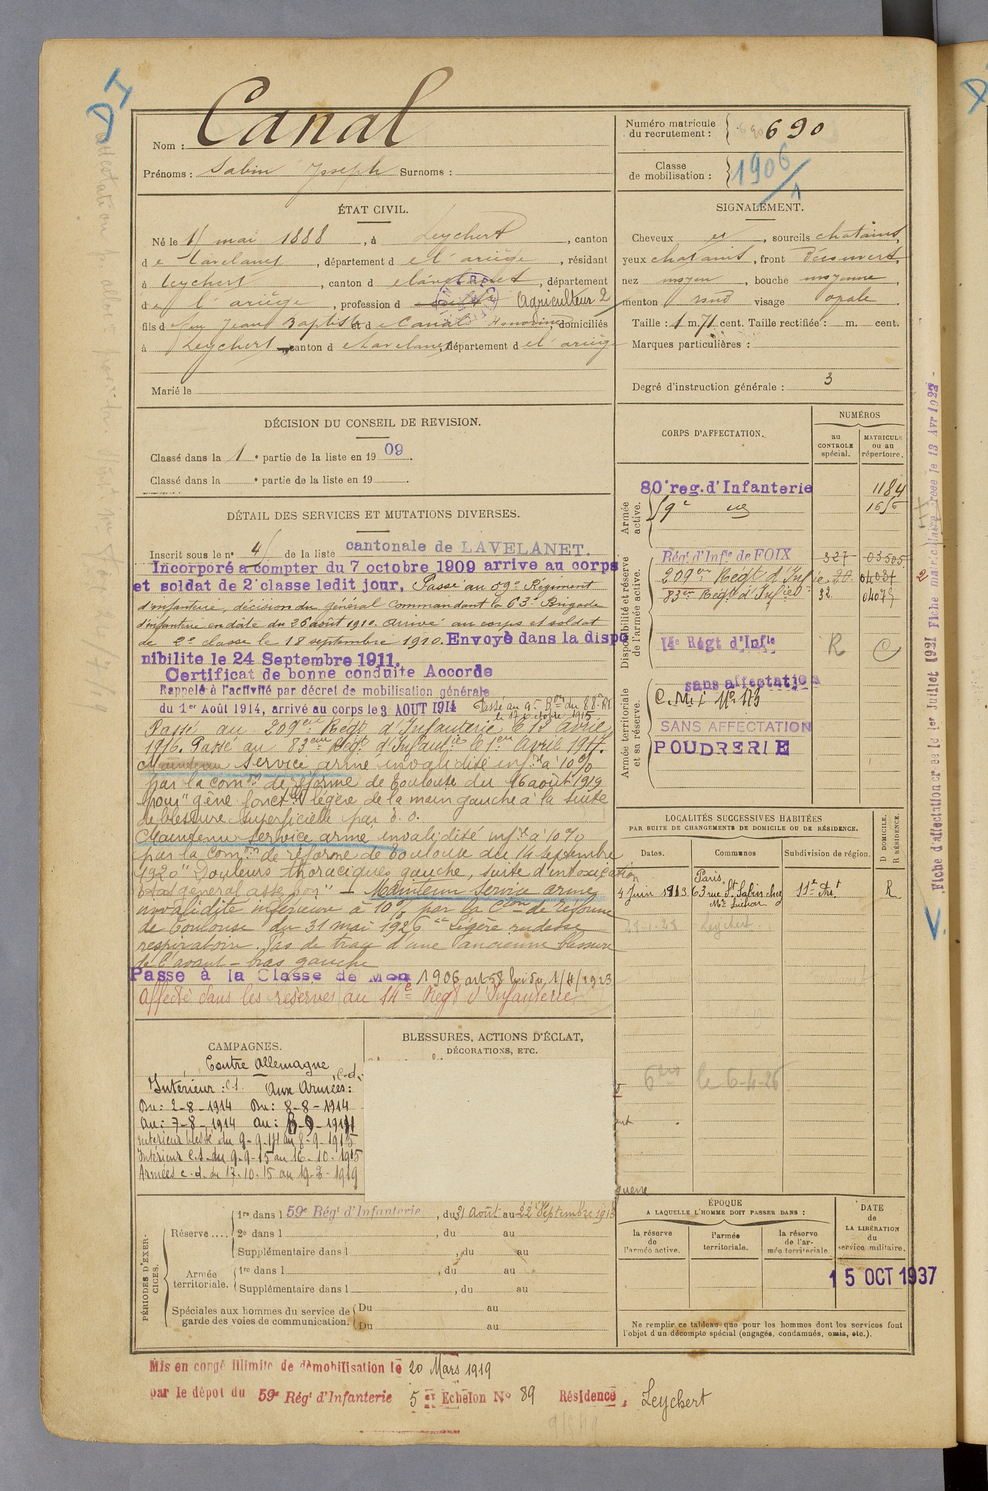 Canal
Nom :
Prénoms : Sabin Joseph Surnoms :
Numéro matricule du recrutement : 690
Classe de mobilisation : 1906
ÉTAT CIVIL.
Né le 11 mai 1888, à Leychert, canton
de Lavelanet, département de l'ariège, résidant
à Leychert, canton de Lavelanet, département
de l'ariège, profession d Agriculteur 2
fils de Jean Baptiste et de Canal Honorine, domiciliés
à Leychert, canton de Lavelanet, département de l'ariège
Marié le
SIGNALEMENT.
Cheveux et, sourcils chatains,
yeux chatains, front découvert,
nez moyen, bouche moyenne,
menton rond visage ovale
Taille : 1 m. 71 cent. Taille rectifiée : m. cent.
Marques particulières :
Degré d'instruction générale : 3
DÉCISION DU CONSEIL DE REVISION.
Classé dans la 1e partie de la liste en 1909
Classé dans la e partie de la liste en 19
DÉTAIL DES SERVICES ET MUTATIONS DIVERSES.
Inscrit sous le n° 4 de la liste cantonale de LAVELANET.
Incorporé a compter du 7 octobre 1909 arrive au corps
et soldat de 2e classe ledit jour, Passé au 59e Régiment
d'infanterie, décision du général commandant la 63e Brigade
d'infanterie en date du 26 août 1910. Arrivé au corps et soldat
de 2e classe le 18 septembre 1910. Envoyè dans la dispo
nibilite le 24 Septembre 1911.
Certificat de bonne conduite Accorde
Rappelé à l'activité par décret de mobilisation générale
du 1er Août 1914, arrivé au corps le 3 AOUT 1914
Passé au 209eme Régt d'Infanterie le 13 avril
1916. Passé au 83eme Régt d'Infanterie le 1er Avril 1917.
Maintenu service armé invalidité infre à 10%
par la comon de réforme de Toulouse du 16 août 1919
pour "gêne fonctlle légère de la main gauche à la suite
de blessure superficielle par é. o.
Maintenu service armé invalidité infre à 10%
par la comon de réforme de Toulouse du 14 septembre
1920 "Douleurs thoraciques gauche, suite d'intoxication
Etat général assez bon" — Maintenu service armé
invalidité inférieure à 10% par la Cion de réforme
de Toulouse du 31 mai 1926 légère rudesse
respiratoire. Pas de trace d'une ancienne blessure
de l'avant-bras gauche
Passé à la Classe de Mob 1906 art 58 loi du 1/4/1923
Affecté dans les réserves au 14e Régt d'Infanterie
CORPS D'AFFECTATION.
NUMÉROS
au CONTROLE spécial.
MATRICULE ou au répertoire.
Armée active.
80e reg. d'Infanterie 1184
59e 1656
Disponibilité et réserve de l'armée active.
Régt d'Infie de FOIX 327 03505
209eme Régt d'Infie
83eme Régt d'Infie 32
14e Régt d'Infie R C
Armée territoriale et sa réserve.
sans affectation
SANS AFFECTATION
POUDRERIE
LOCALITÉS SUCCESSIVES HABITÉES
PAR SUITE DE CHANGEMENTS DE DOMICILE OU DE RÉSIDENCE.
D DOMICILE. R RÉSIDENCE.
Dates. Communes Subdivision de région.
4 Juin 1913. Paris 63 rue St Sabin chez 11e Art R
Leychert
6 le 6-4-26
CAMPAGNES.
Contre Allemagne
Intérieur : C.S. Aux Armées : C.d.
Du : 2-8-1914 Du : 8-8-1914
Au : 7-8-1914 au :
Intérieur blessé du 9-9-14 au 8-9-1915
Intérieur C.S. du 9-9-15 au 16-10-1915
Armées c.d. du 17-10-15 au 19-3-1919
BLESSURES, ACTIONS D'ÉCLAT, DÉCORATIONS, ETC.
guerre
PÉRIODES D'EXERCICES.
Réserve 1re dans l 59e Régt d'Infanterie, du 31 Août au 22 Septembre 1913
2e dans l , du au
Supplémentaire dans l , du au
Armée territoriale. 1re dans l , du au
Supplémentaire dans l , du au
Spéciales aux hommes du service de garde des voies de communication. Du au
Du au
ÉPOQUE
A LAQUELLE L'HOMME DOIT PASSER DANS :
la réserve de l'armée active.
l'armée territoriale.
la réserve de l'armée territoriale.
DATE de LA LIBÉRATION du service militaire.
15 OCT 1937
Ne remplir ce tableau que pour les hommes dont les services font l'objet d'un décompte spécial (engagés, condamnés, omis, etc.).
Mis en congé illimité de démobilisation le 20 Mars 1919
par le dépot du 59e Régt d'Infanterie 5e Echelon N° 89 Résidence, Leychert